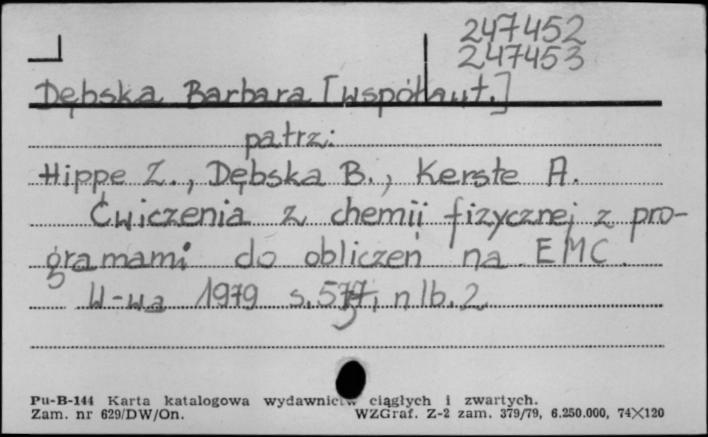 247452
247453
Dębska Barbara [współaut.]
patrz:
Hippe Z., Dębska B., Kerste A.
Ćwiczenia z chemii fizycznej z pro-
gramami do obliczeń na EMC.
W-wa 1979 nlb. 2
Pu-B-144 Karta katalogowa wydawnictw ciągłych i zwartych.
Zam. nr 629/DW/On. WZGraf. Z-2 zam. 379/79, 6.250.000, 74×120